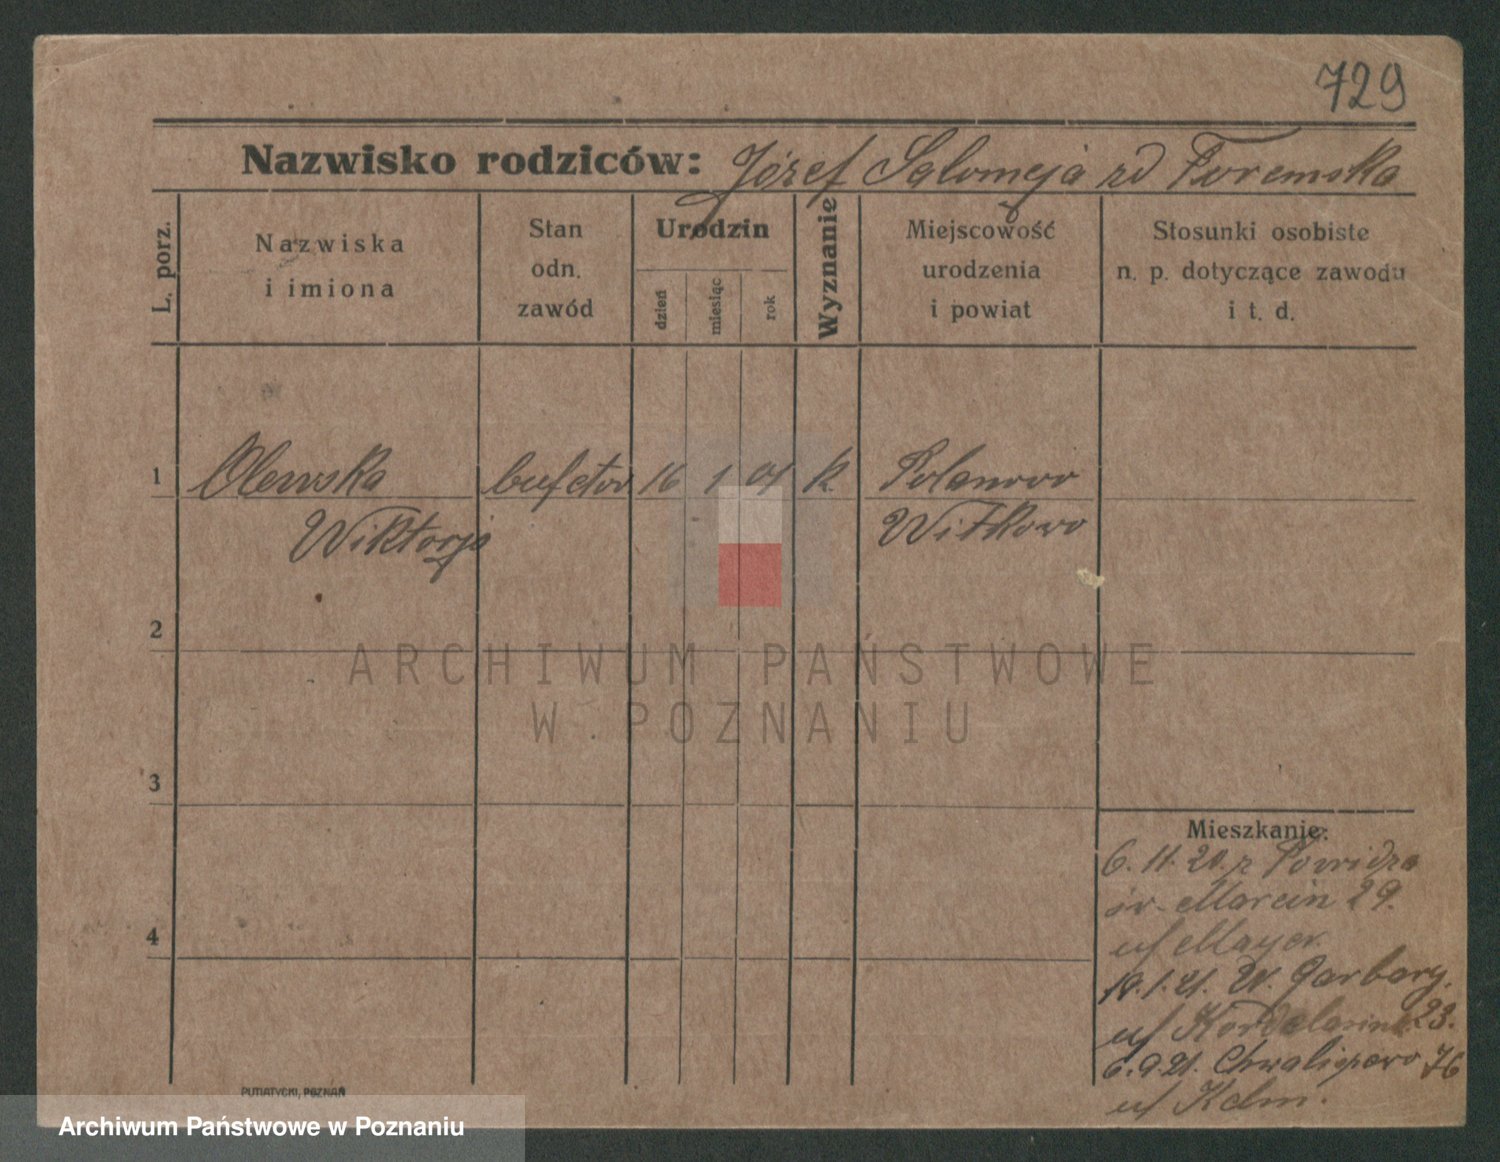 729
Nazwisko rodziców: Józef Salomeja zd Toremska
L. porz.
Nazwiska
i imiona
Stan
odn.
zawód
Urodzin
dzień
miesiąc
rok
Wyznanie
Miejscowość
urodzenia
i powiat
Stosunki osobiste
n. p. dotyczące zawodu
i t. d.
1 Olewska bufetow 16 1 01 k. Polanowo
Wiktorja Witkowo
2
3
4
Mieszkanie:
6. 11. 20. z Powidza
św. Marcin 29.
u/ Mayer
19. 1. 21. W. Garbary.
u/ 23.
6. 9. 21. Chwaliszewo 76
u/ Kelm.
PUTIATYCKI, POZNAŃ
ARCHIWUM PAŃSTWOWE
W POZNANIU
Archiwum Państwowe w Poznaniu